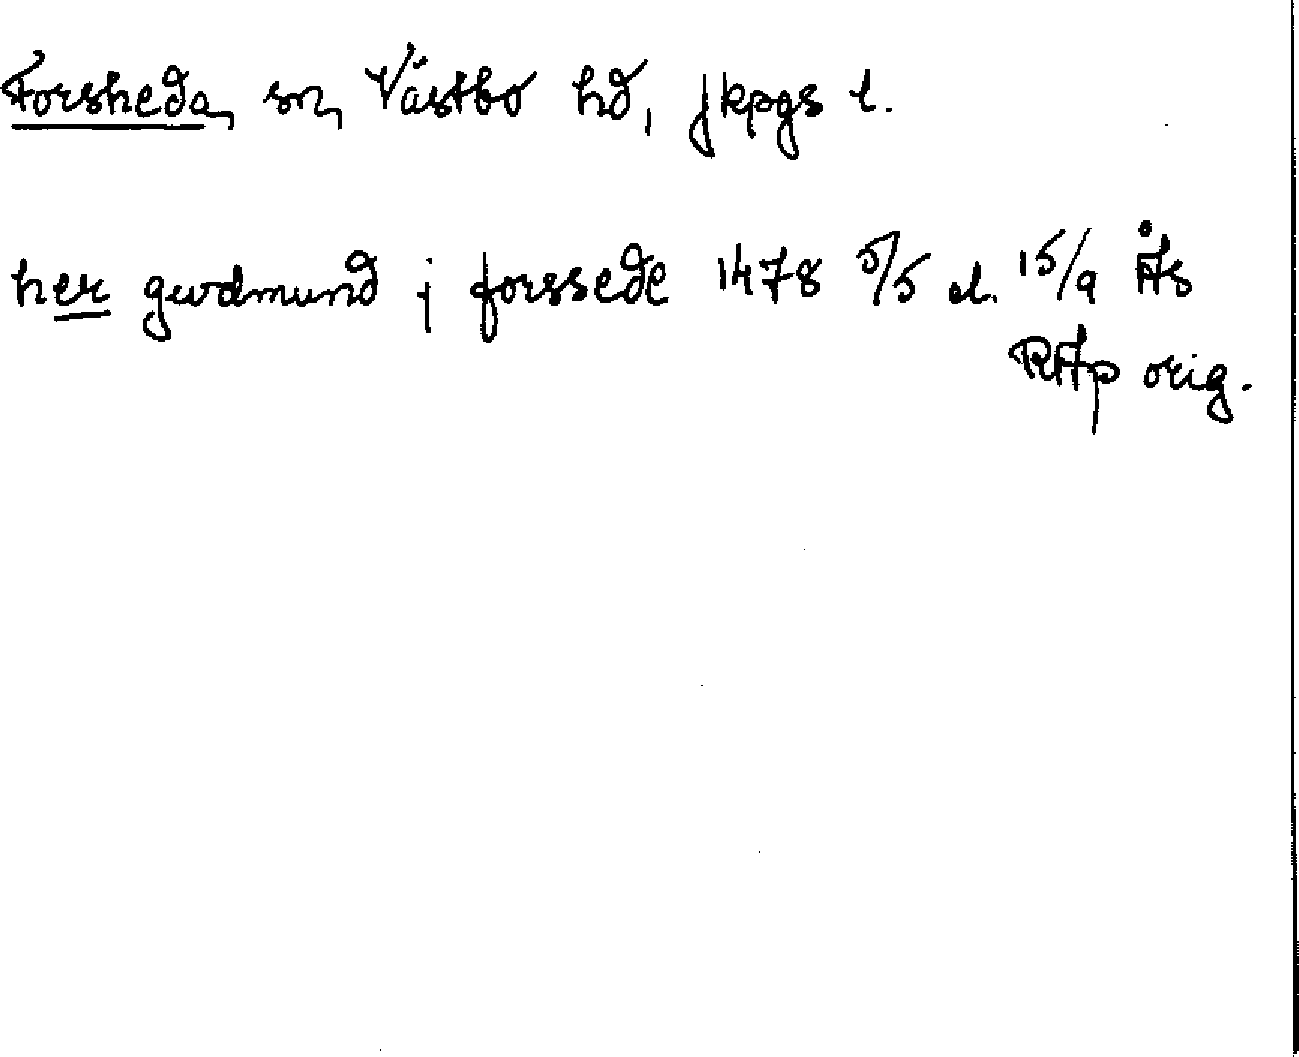 Forsheda sn, Västbo hd, Jkpgs l.
her gudmund j forssede 1478 5/5 el. 15/9 Ås
RAp orig.